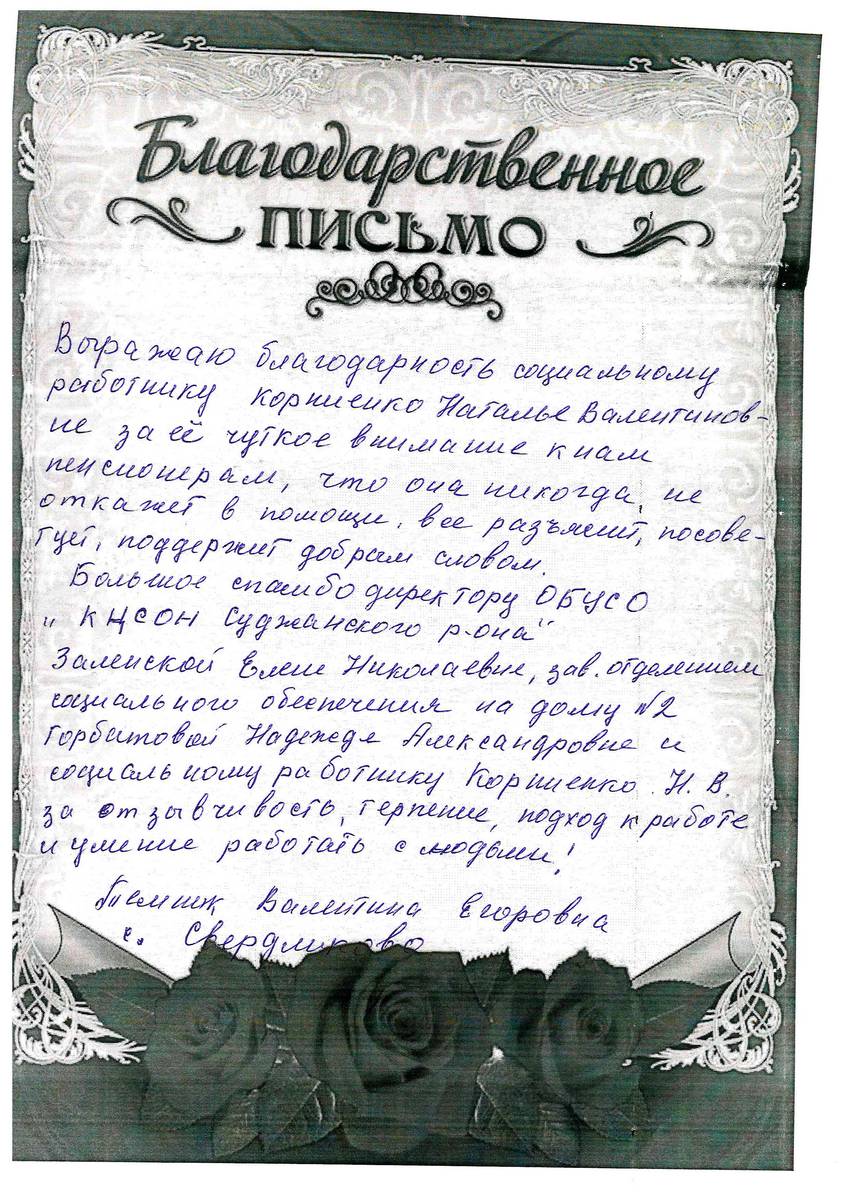 Благодарственное
ПИСЬМО
Выражаю благодарность социальному
работнику Корниенко Наталье Валентинов-
не за её чуткое внимание к нам
пенсионерам, что она никогда не
откажет в помощи, все разъяснит, посове-
тует, поддержит добрам словом.
Большое спасибо директору ОБУСО
„КЦСОН Суджанского р-она"
Заленской Елене Николаевне, зав. отделением
социального обеспечения на дому №2
Горбатовой Надежде Александровне и
социальному работнику Корниенко Н. В.
за отзывчивость, терпение, подход к работе
и умение работать с людьми!
Валентина Егоровна
с. Свердликово